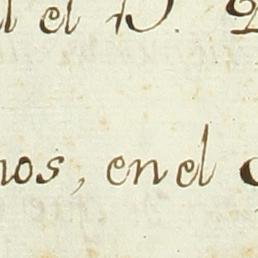 el D.
nos, en el